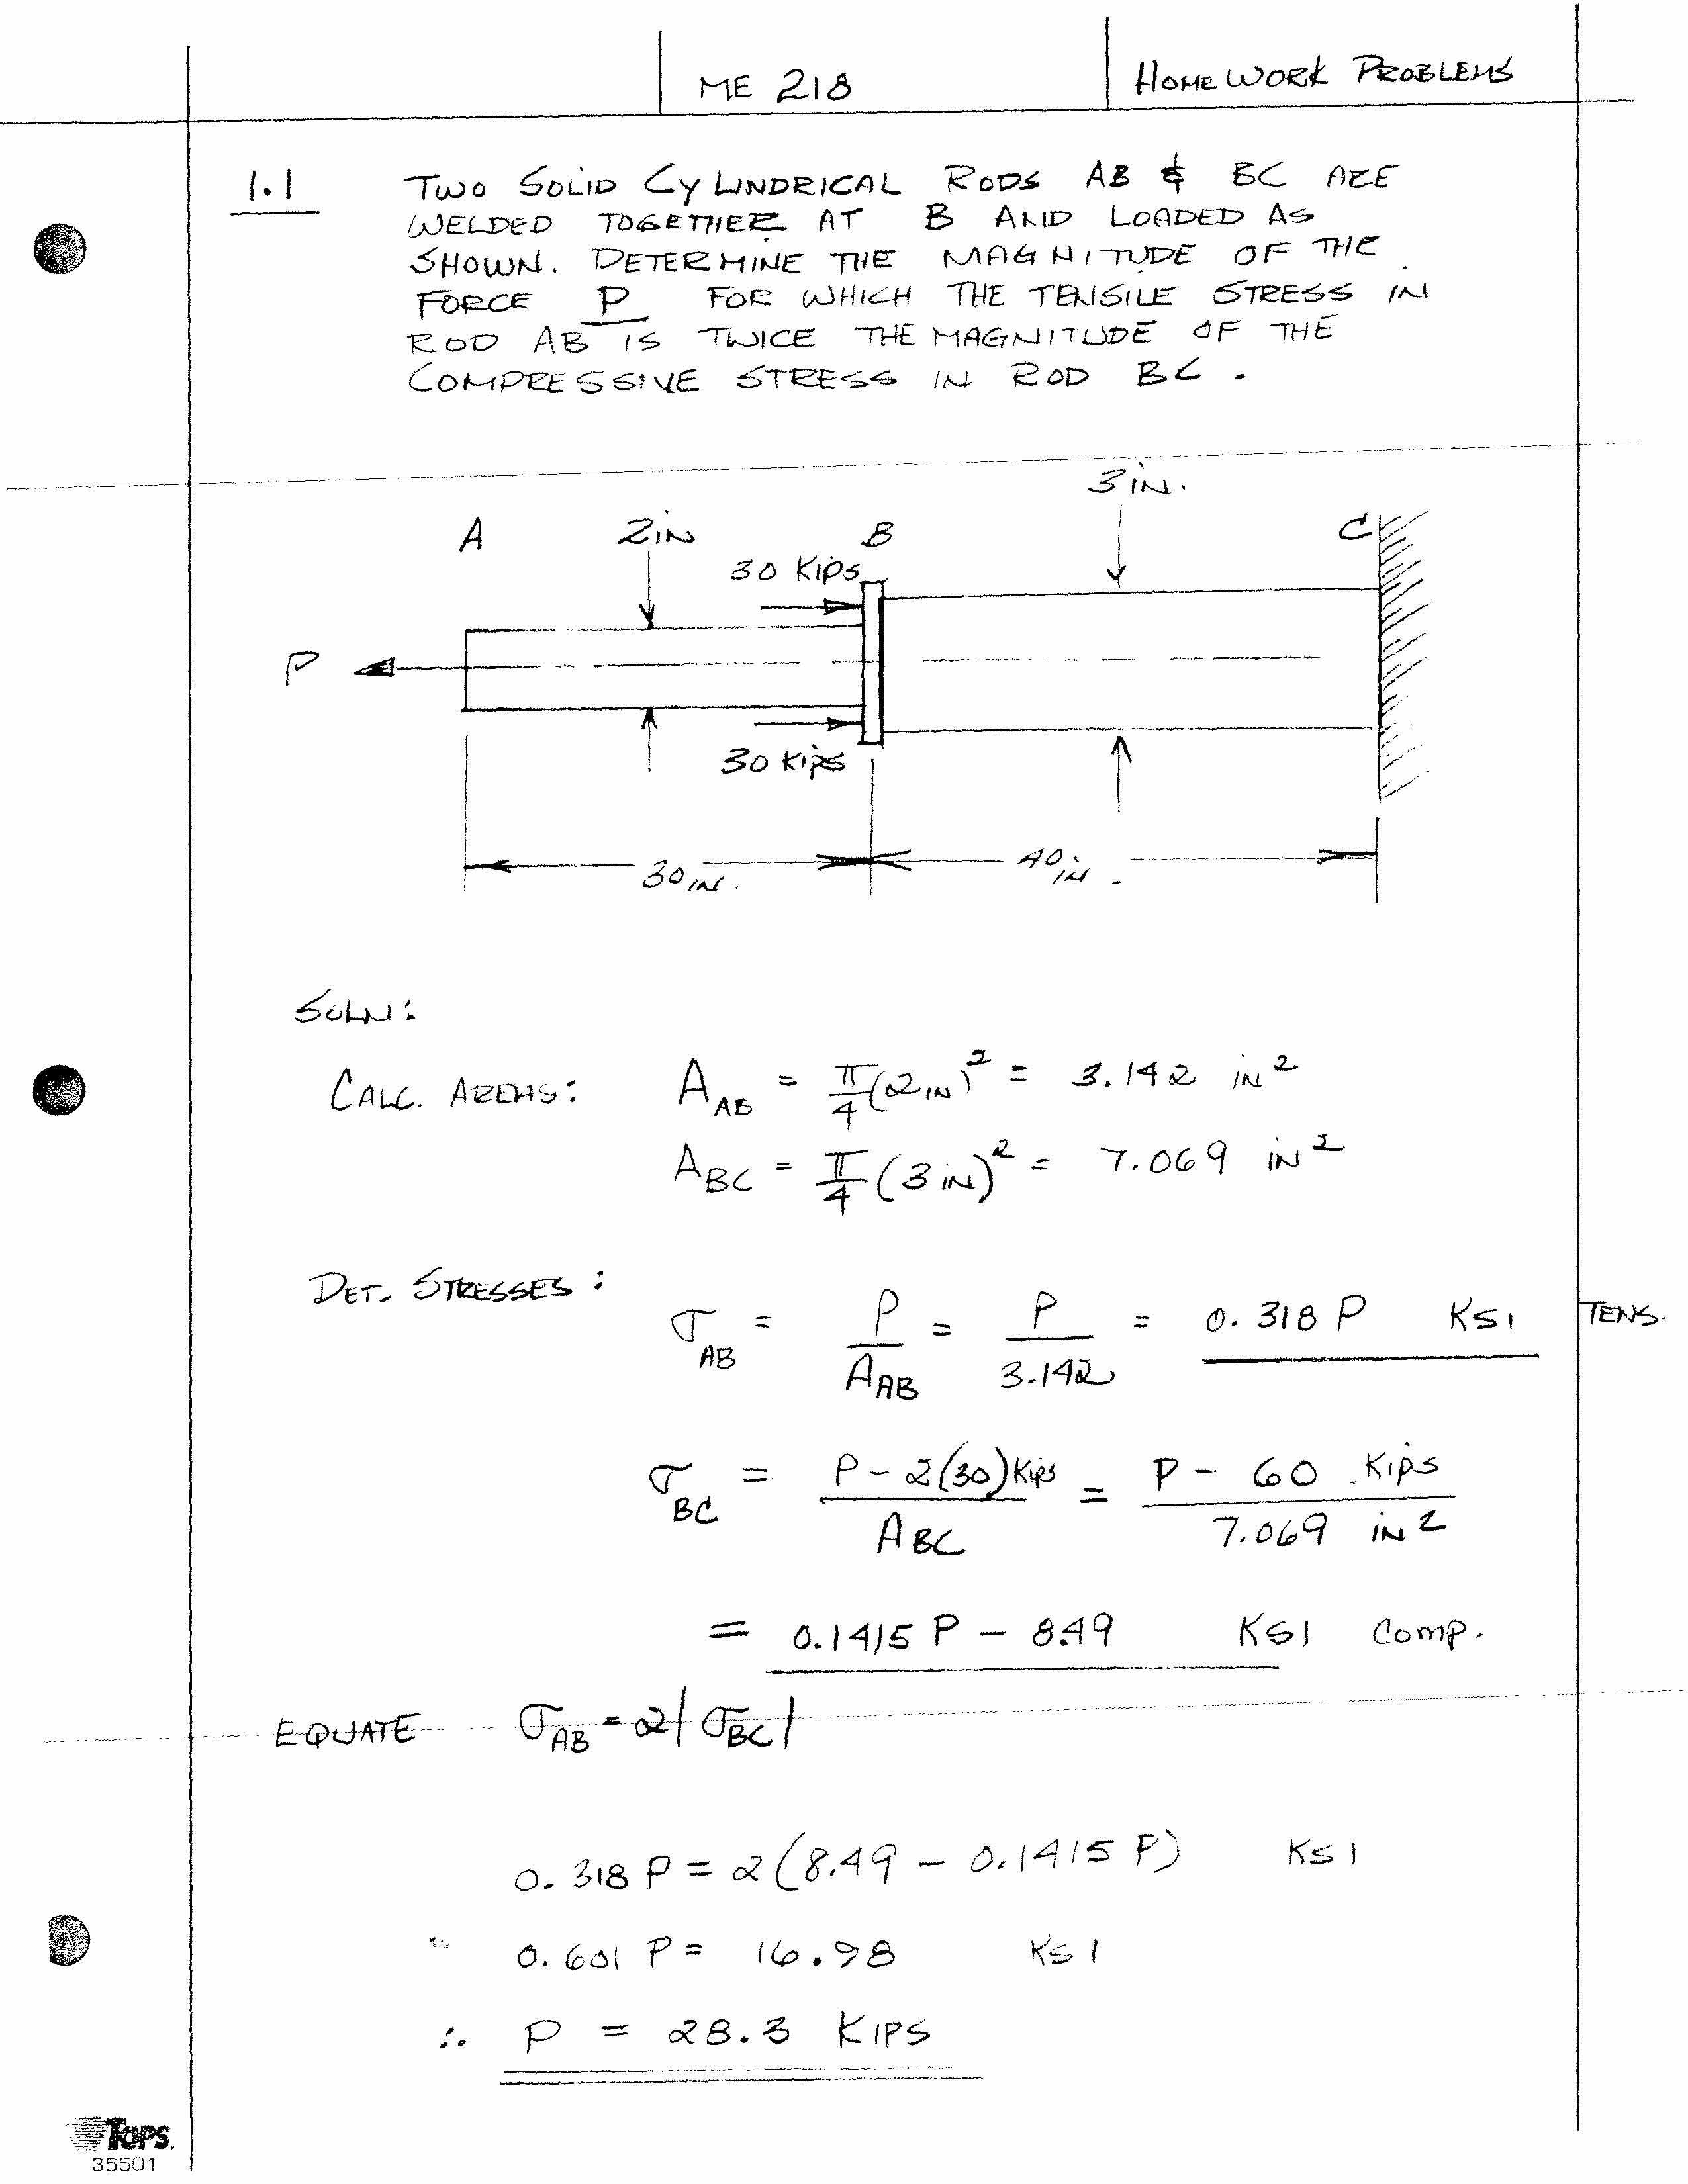 ME 218
HOMEWORK PROBLEMS
1.1 TWO SOLID CYLINDRICAL RODS AB & BC ARE
WELDED TOGETHER AT B AND LOADED AS
SHOWN. DETERMINE THE MAGNITUDE OF THE
FORCE P FOR WHICH THE TENSILE STRESS IN
ROD AB IS TWICE THE MAGNITUDE OF THE
COMPRESSIVE STRESS IN ROD BC.
3 IN.
A 2 IN B C
30 KIPS
P
30 KIPS
30 IN. 40 IN.
SOLN:
CALC. AREAS: A_AB = π/4 (2 IN)² = 3.142 IN²
A_BC = π/4 (3 IN)² = 7.069 IN²
DET. STRESSES:
σ_AB = P/A_AB = P/3.142 = 0.318 P KSI TENS.
σ_BC = (P - 2(30) KIPS)/A_BC = (P - 60 KIPS)/(7.069 IN²)
= 0.1415 P - 8.49 KSI COMP.
EQUATE σ_AB = 2|σ_BC|
0.318 P = 2(8.49 - 0.1415 P) KSI
0.601 P = 16.98 KSI
∴ P = 28.3 KIPS
TOPS.
35501